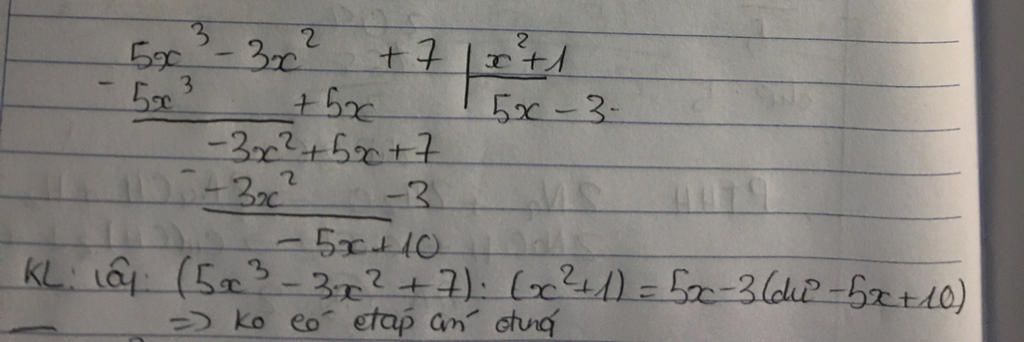 5x³ - 3x² + 7 | x² + 1
- 5x³ + 5x | 5x - 3
-3x² + 5x + 7
- -3x² - 3
- 5x + 10
KL: Vậy: (5x³ - 3x² + 7) : (x² + 1) = 5x - 3 (dư - 5x + 10)
=> ko có đáp án đúng